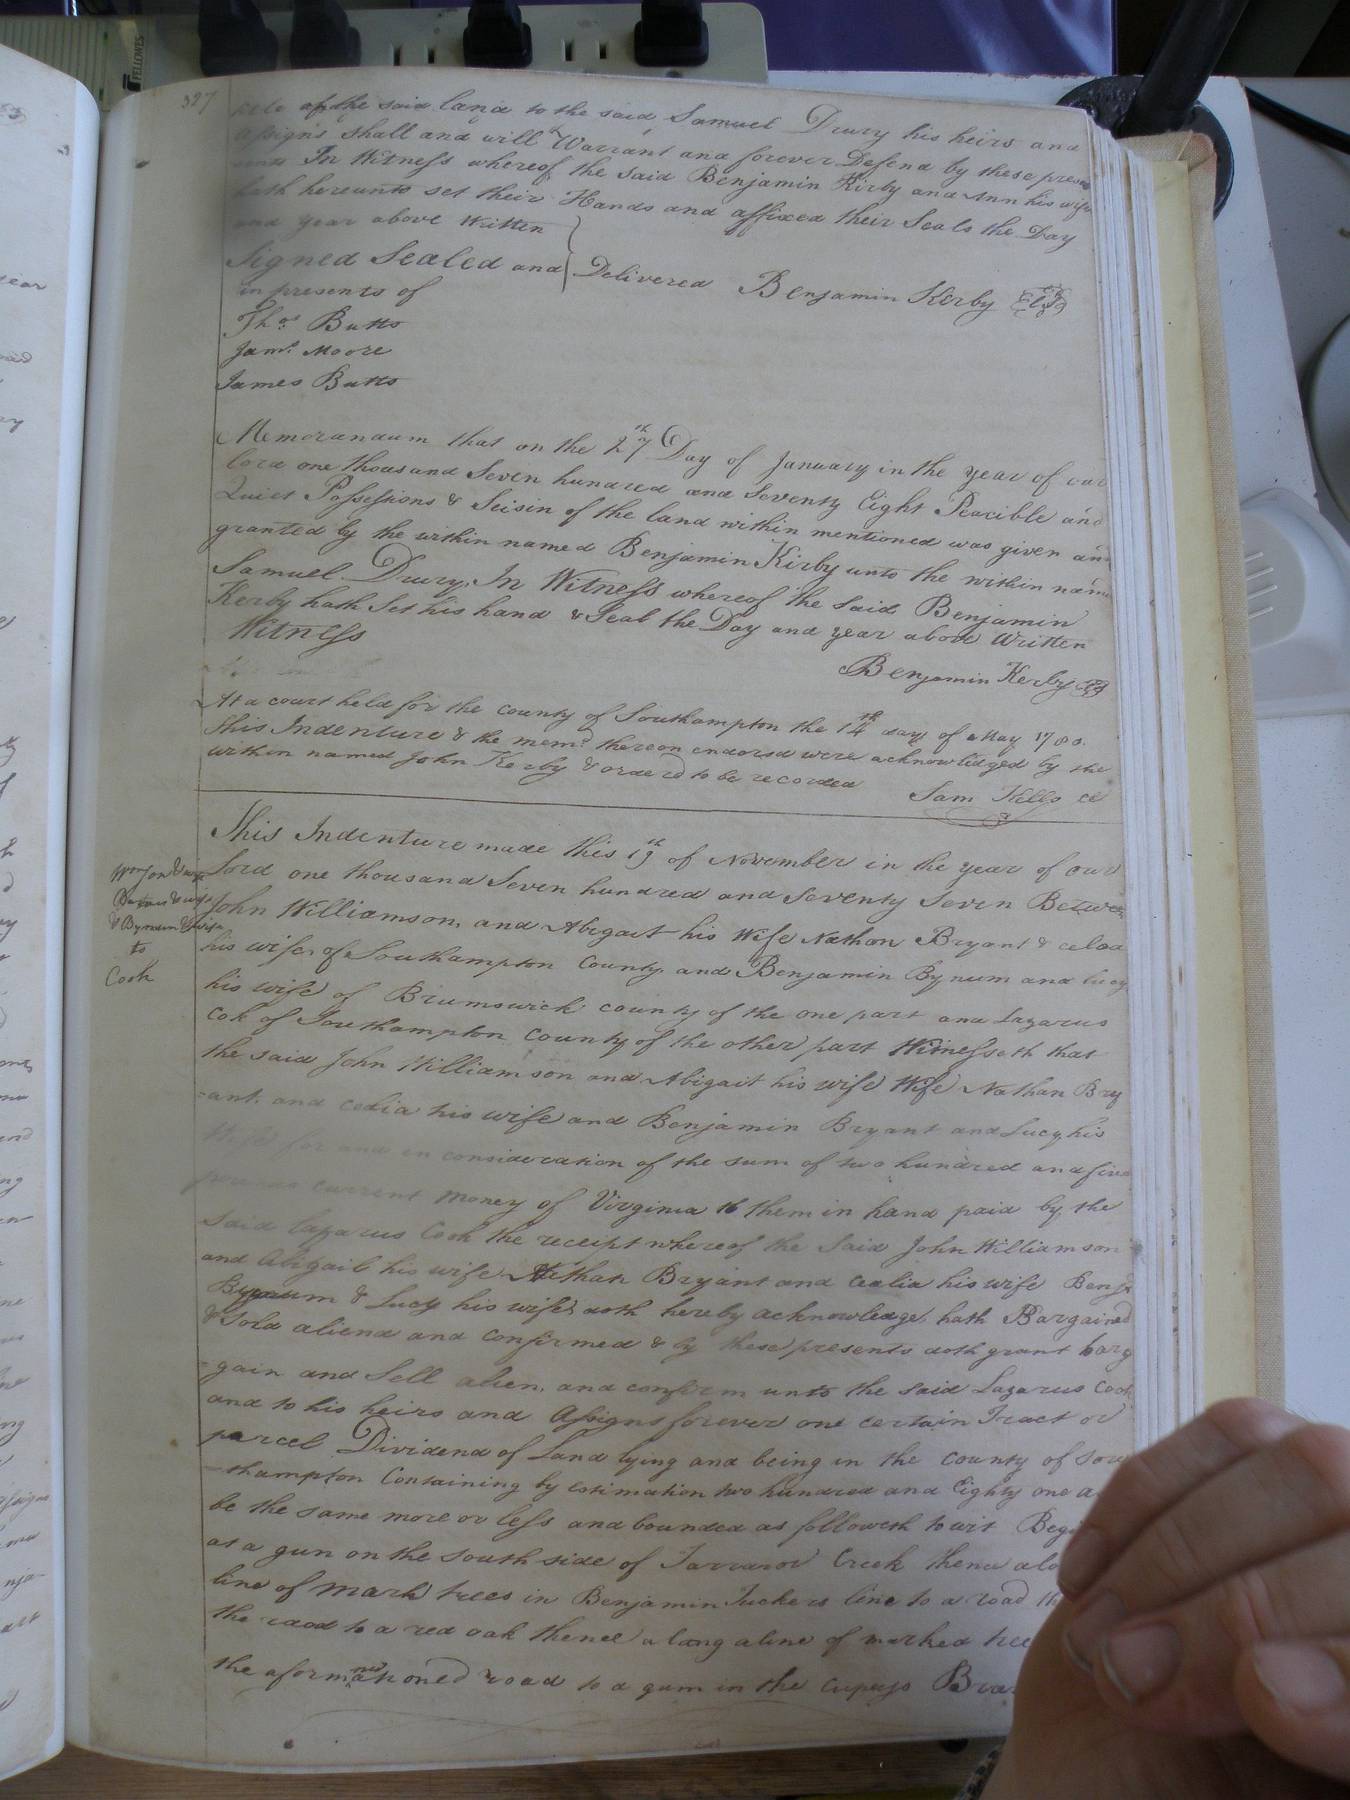 FELLOWES
327
of the said land to the said Samuel Drury his heirs and
assigns shall and will Warrant and forever Defend by these prese
In Witness whereof the said Benjamin Kirby and Ann his wife
hath hereunto set their Hands and affixed their Seals the Day
and year above Written
Signed Sealed and Delivered Benjamin Kerby
in presents of
Thos. Butts
Jams. Moore
James Butts
Memorandum that on the 27th Day of January in the year of our
lord one thousand Seven hundred and Seventy Eight Peacible and
Quiet Possessions & Seisin of the land within mentioned was given and
granted by the within named Benjamin Kirby unto the within name
Samuel Drury, In Witness whereof the said Benjamin
Kerby hath Set his hand & Seal the Day and year above Written
Witness
Benjamin Kerby
At a court held for the county of Southampton the 14th day of May 1780.
This Indenture & the memd. thereon endorsd were acknowledged by the
within named John Kerby & orderd to be recorded
Sam Kello
This Indenture made this 19th of November in the year of our
Lord one thousand Seven hundred and Seventy Seven Betwe
John Williamson, and Abigail his Wife Nathan Bryant & celea
his wife, of Southampton County and Benjamin Bynum and lucy
his wife of Brumswick county of the one part and Lazarus
Cok of Southampton County of the other part Witnesseth that
the said John Williamson and Abigail his wife Wife Nathan Bry
-ant. and celia his wife and Benjamin Bryant and Lucy his
Wife for and in consideration of the sum of two hundred and five
pounds current money of Virginia to them in hand paid by the
said lazarus Cook the receipt whereof the Said John Williamson
and Abigail his wife Nathan Bryant and cealia his wife Benja
Bynum & Lucy his wife doth hereby acknowledge, hath Bargained
& Sold aliend and confirmed & by these presents doth grant barg
-gain and Sell alien, and confirm unto the said Lazarus Cook
and to his heirs and Assigns forever one certain Tract or
parcel Dividend of Land lying and being in the county of Sou
-thampton Containing by estimation two hundred and Eighty one a
be the same more or less and bounded as followeth to wit Begi
at a gun on the south side of Tarraror Creek thence alo
line of mark trees in Benjamin Tuckers line to a road th
the raod to a red oak thence along a line of marked tree
the aformentioned road to a gum in the cupress Bra
& Bynum & wife
to
Cook